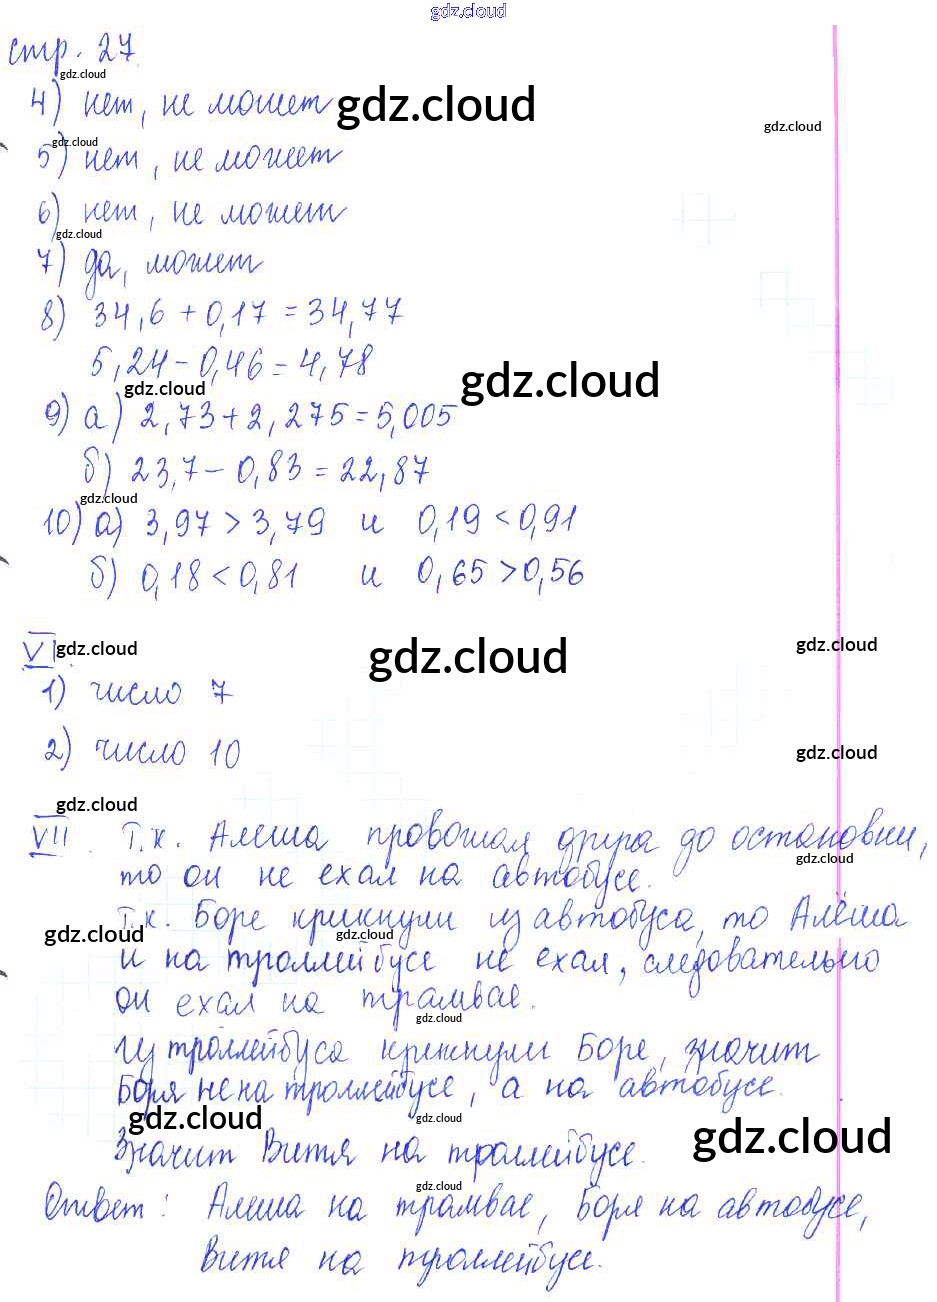 gdz.cloud
стр. 27
gdz.cloud
4) нет, не может gdz.cloud
gdz.cloud
gdz.cloud
5) нет, не может
6) нет, не может
gdz.cloud
7) да, может
8) 34,6 + 0,17 = 34,77
5,24 - 0,46 = 4,78
gdz.cloud gdz.cloud
9) а) 2,73 + 2,275 = 5,005
б) 23,7 - 0,83 = 22,87
gdz.cloud
10) а) 3,97 > 3,79 и 0,19 < 0,91
б) 0,18 < 0,81 и 0,65 > 0,56
VI. gdz.cloud gdz.cloud gdz.cloud
1) число 7
2) число 10
gdz.cloud
gdz.cloud
VII. Т.к. Алеша провожал друга до остановки,
gdz.cloud
то он не ехал на автобусе.
Т.к. Боре крикнули из автобуса, то Алёша
gdz.cloud gdz.cloud
и на троллейбусе не ехал, следовательно
он ехал на трамвае.
gdz.cloud
Из троллейбуса крикнули Боре, значит
Боря не на троллейбусе, а на автобусе.
gdz.cloud gdz.cloud gdz.cloud
Значит Витя на троллейбусе.
gdz.cloud
Ответ: Алеша на трамвае, Боря на автобусе,
Витя на троллейбусе.